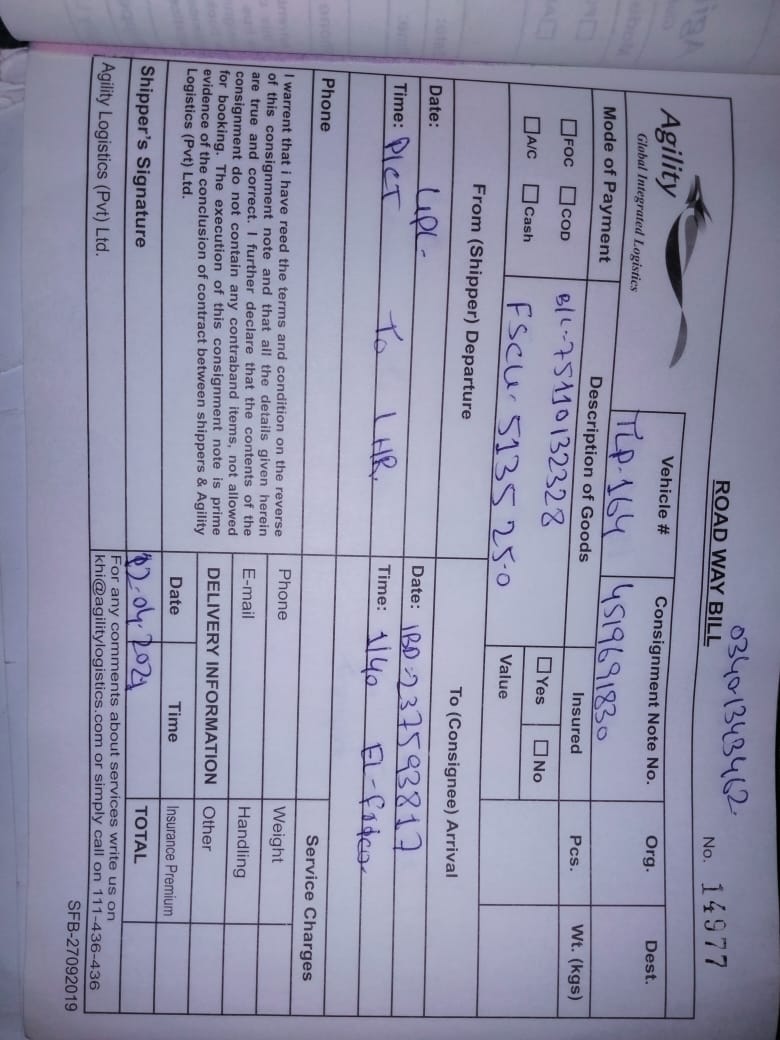 03401343462
ROAD WAY BILL
No. 14977
Agility
Global Integrated Logistics
Vehicle #
TLP-164
Consignment Note No.
4519691830
Org.
Dest.
Mode of Payment
FOC COD
A/C Cash
Description of Goods
B/L-75110132328
FSCU-5135 25-0
Insured
Yes No
Value
Pcs.
Wt. (kgs)
From (Shipper) Departure
Date: UPL-
Time: PICT To LHR
To (Consignee) Arrival
Date: IBD-237593817
Time: 1/40
Phone
I warrent that i have reed the terms and condition on the reverse
of this consignment note and that all the details given herein
are true and correct. I further declare that the contents of the
consignment do not contain any contraband items, not allowed
for booking. The execution of this consignment note is prime
evidence of the conclusion of contract between shippers & Agility
Logistics (Pvt) Ltd.
Phone
E-mail
DELIVERY INFORMATION
Date Time
12-04-2021
Service Charges
Weight
Handling
Other
Insurance Premium
TOTAL
Shipper's Signature
Agility Logistics (Pvt) Ltd.
For any comments about services write us on
khi@agilitylogistics.com or simply call on 111-436-436
SFB-27092019